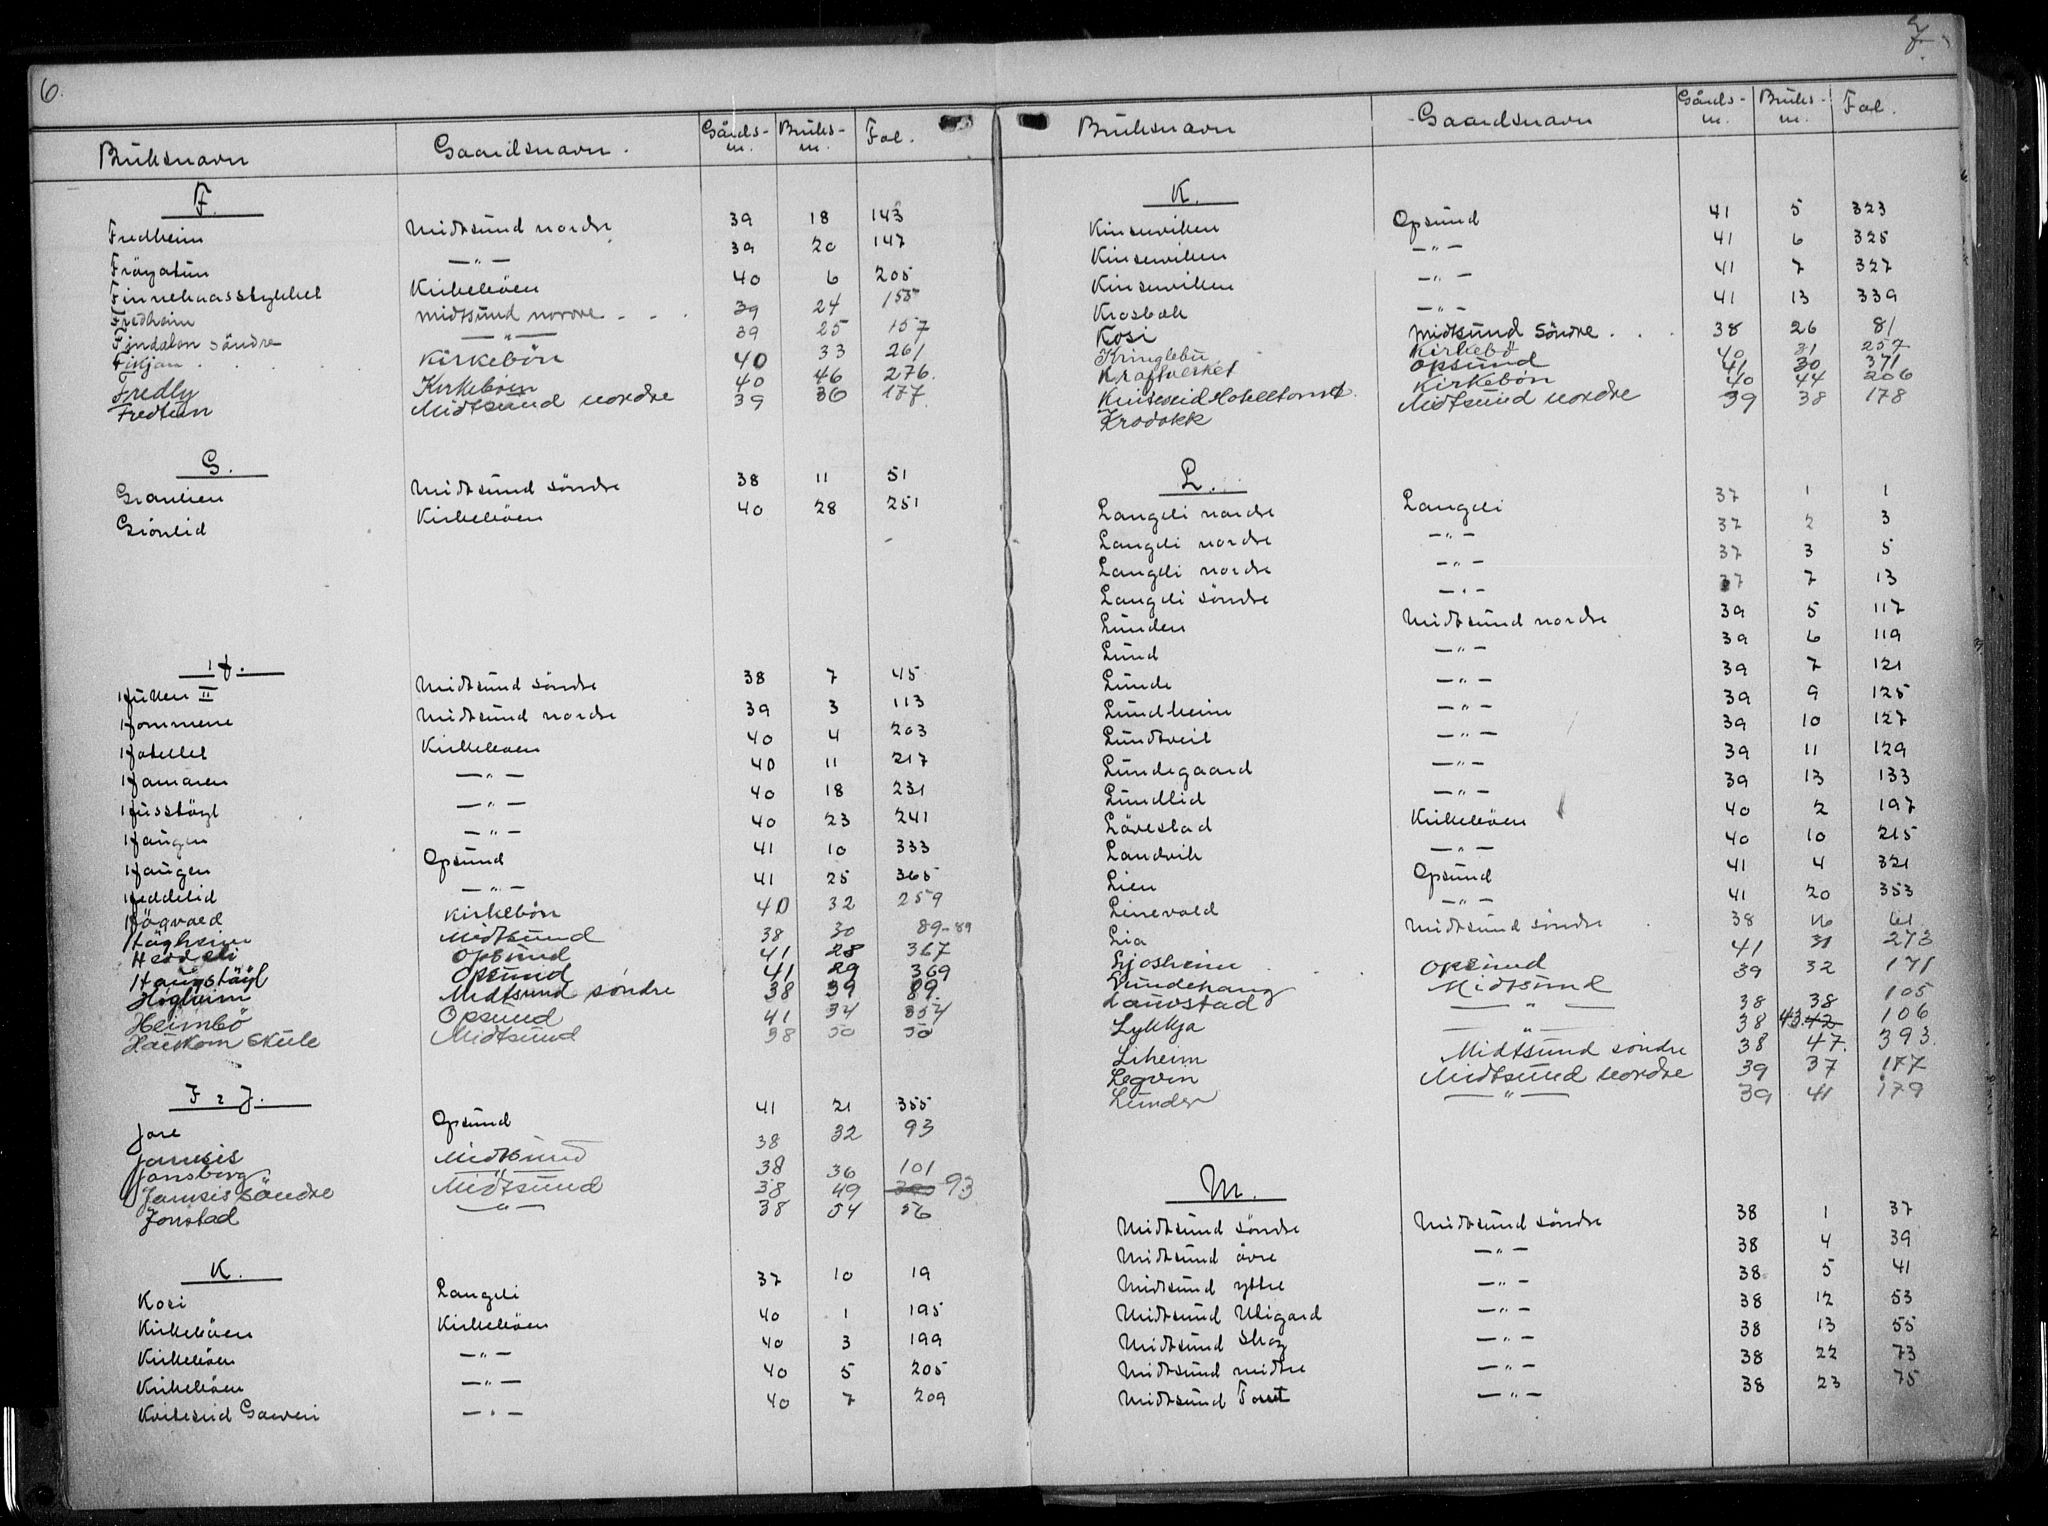 6.
Bruksnavn Gaardsnavn. Gårds-nr. Bruks-nr. Fol.
F.
Fredheim Midtsund nordre 39 18 143
Fröyatun —"— 39 20 147
Finnekaasstykket Kirkeböen 40 6 205
Fredheim Midtsund nordre 39 24 155
Findalen Söndre —"— 39 25 157
Fikjan Kirkebön 40 33 261
Fredly Kirkeböen 40 46 276.
Fredtun Midtsund nordre 39 36 177.
G.
Granlien Midtsund söndre 38 11 51
Grönlid Kirkeböen 40 28 251
H.
II Midtsund söndre 38 7 45
Hommene Midtsund nordre 39 3 113
Hotellet Kirkeböen 40 4 203
Hamaren —"— 40 11 217
Husstöyl —"— 40 18 231
Haugen —"— 40 23 241
Haugen Opsund 41 10 333
Heddelid —"— 41 25 365
Högvoed Kirkebön 40 32 259
Högheim Midtsund 38 30 89-89
Heddeli Opsund 41 28 367
Haugstöyl Opsund 41 29 369
Högheim Midtsund söndre 38 39 89.
Heimbö Opsund 41 34 354
Skule Midtsund 38 50 50
I & J.
Jore Opsund 41 21 355
Jamsis Midtsund 38 32 93
Jonsborg —"— 38 36 101
Jamsis Söndre Midtsund 38 49 93
Jonstad —"— 38 54 56
K.
Kosi Langeli 37 10 19
Kirkeböen Kirkeböen 40 1 195
Kirkeböen —"— 40 3 199
Kirkeböen —"— 40 5 205
Kviteseid —"— 40 7 209
7.
Bruksnavn Gaardsnavn Gårds-nr. Bruks-nr. Fol.
K.
Kinseviken Opsund 41 5 323
Kinseviken —"— 41 6 325
Kinseviken —"— 41 7 327
Krosbak —"— 41 13 339
Kosi Midtsund Söndre 38 26 81
Kringlebu Kirkebö 40 31 257
Kraftverket Opsund 41 30 371
Kviteseid Hotelltomt. Kirkebön 40 44 206
Krodokk Midtsund nordre 39 38 178
L.
Langeli nordre Langeli 37 1 1
Langeli nordre —"— 37 2 3
Langeli nordre —"— 37 3 5
Langeli söndre —"— 37 7 13
Lunden Midtsund nordre 39 5 117
Lund —"— 39 6 119
Lunde —"— 39 7 121
Lundheim —"— 39 9 125
Lundtveit —"— 39 10 127
Lundegaard —"— 39 11 129
Lundlid —"— 39 13 133
Lövestad Kirkeböen 40 2 197
Landvik —"— 40 10 215
Lien Opsund 41 4 321
Linevald —"— 41 20 353
Lia Midtsund söndre 38 16 61
Ljosheim Opsund 41 31 273
Lundehaug Midtsund 39 32 171
Lauvstad —"— 38 38 105
Lykkja —"— 38 43 42 106
Liheim Midtsund söndre 38 47. 393.
Legvin Midtsund nordre 39 37 177
Lunder —"— 39 41 179
M.
Midtsund söndre Midtsund söndre 38 1 37
Midtsund övre —"— 38 4 39
Midtsund yttre —"— 38 5 41
Midtsund Utigard —"— 38 12 53
Midtsund Skog —"— 38 13 55
Midtsund midtre —"— 38 22 73
Midtsund —"— 38 23 75